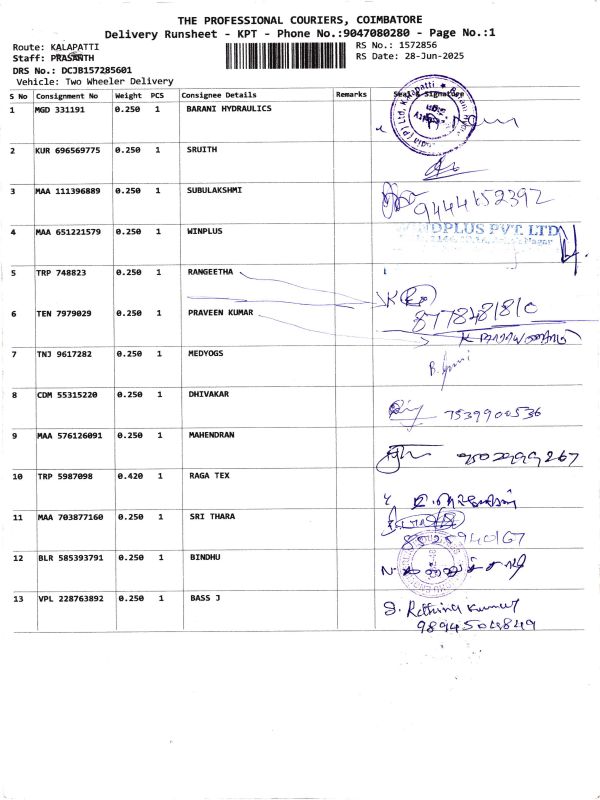 THE PROFESSIONAL COURIERS, COIMBATORE
Delivery Runsheet - KPT - Phone No.:9047080280 - Page No.:1
Route: KALAPATTI
RS No.: 1572856
Staff: PRASANTH
RS Date: 28-Jun-2025
DRS No.: DCJB157285601
Vehicle: Two Wheeler Delivery
S No Consignment No Weight PCS Consignee Details Remarks Seal & Signature
1 MGD 331191 0.250 1 BARANI HYDRAULICS
2 KUR 696569775 0.250 1 SRUITH
3 MAA 111396889 0.250 1 SUBULAKSHMI
9444152392
4 MAA 651221579 0.250 1 WINPLUS
DPLUS PVT. LTD
5 TRP 748823 0.250 1 RANGEETHA
6 TEN 7979029 0.250 1 PRAVEEN KUMAR
7 TNJ 9617282 0.250 1 MEDYOGS
8 CDM 55315220 0.250 1 DHIVAKAR
7539900536
9 MAA 576126091 0.250 1 MAHENDRAN
10 TRP 5987098 0.420 1 RAGA TEX
11 MAA 703877160 0.250 1 SRI THARA
12 BLR 585393791 0.250 1 BINDHU
13 VPL 228763892 0.250 1 BASS J
S. Rethina Kumar